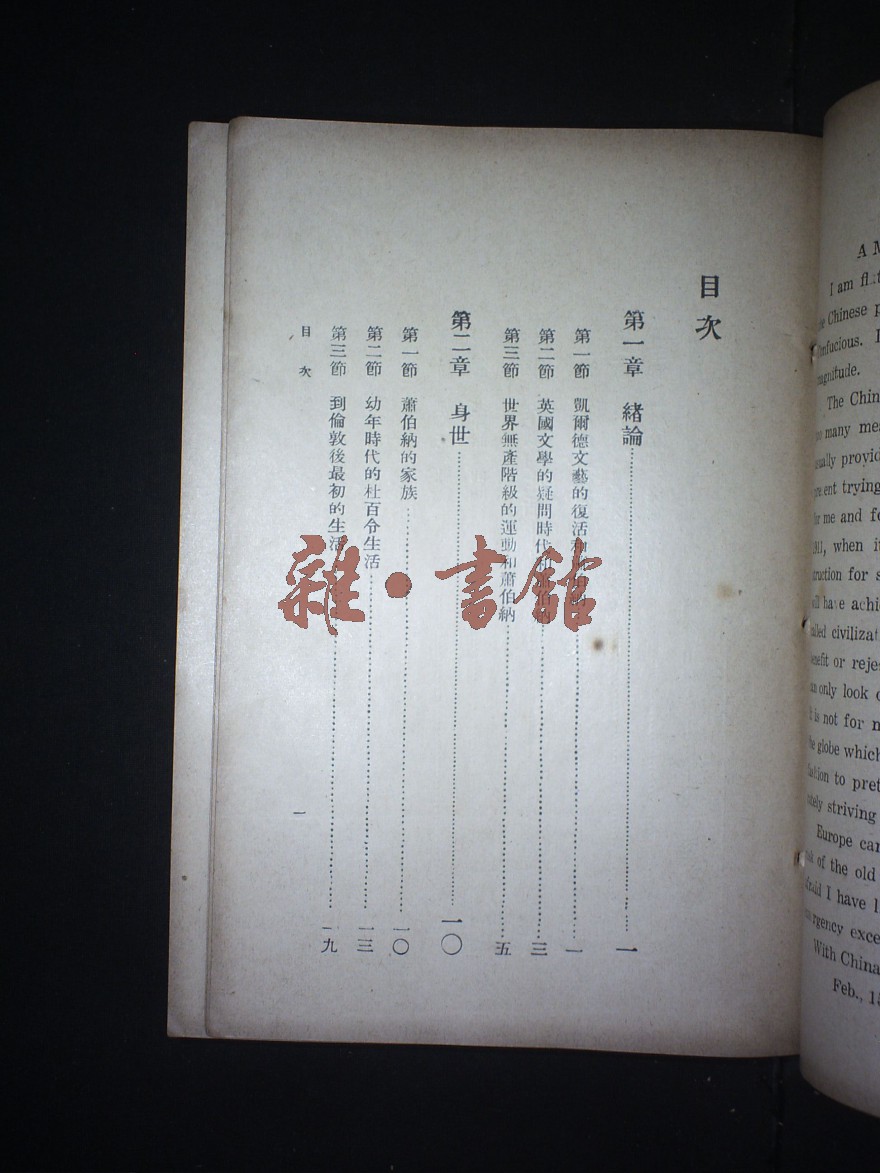 目次
第一章 緒論 一
第一節 凱爾德文藝的復活和 一
第二節 英國文學的疑問時代和 三
第三節 世界無產階級的運動和蕭伯納 五
第二章 身世 一〇
第一節 蕭伯納的家族 一〇
第二節 幼年時代的杜百令生活 一三
第三節 到倫敦後最初的生活 一九
目次
一
雜·書館
A M
I am fl
Chinese p
nfucious. I
magnitude.
The Chin
many mea
ually provid
ent trying
for me and fo
when it
ruction for s
will have achi
alled civilizat
enefit or reje
an only look
it is not for m
the globe which
to pret
ately striving
Europe can
of the old
afraid I have l
rgency exce
With China
Feb., 15